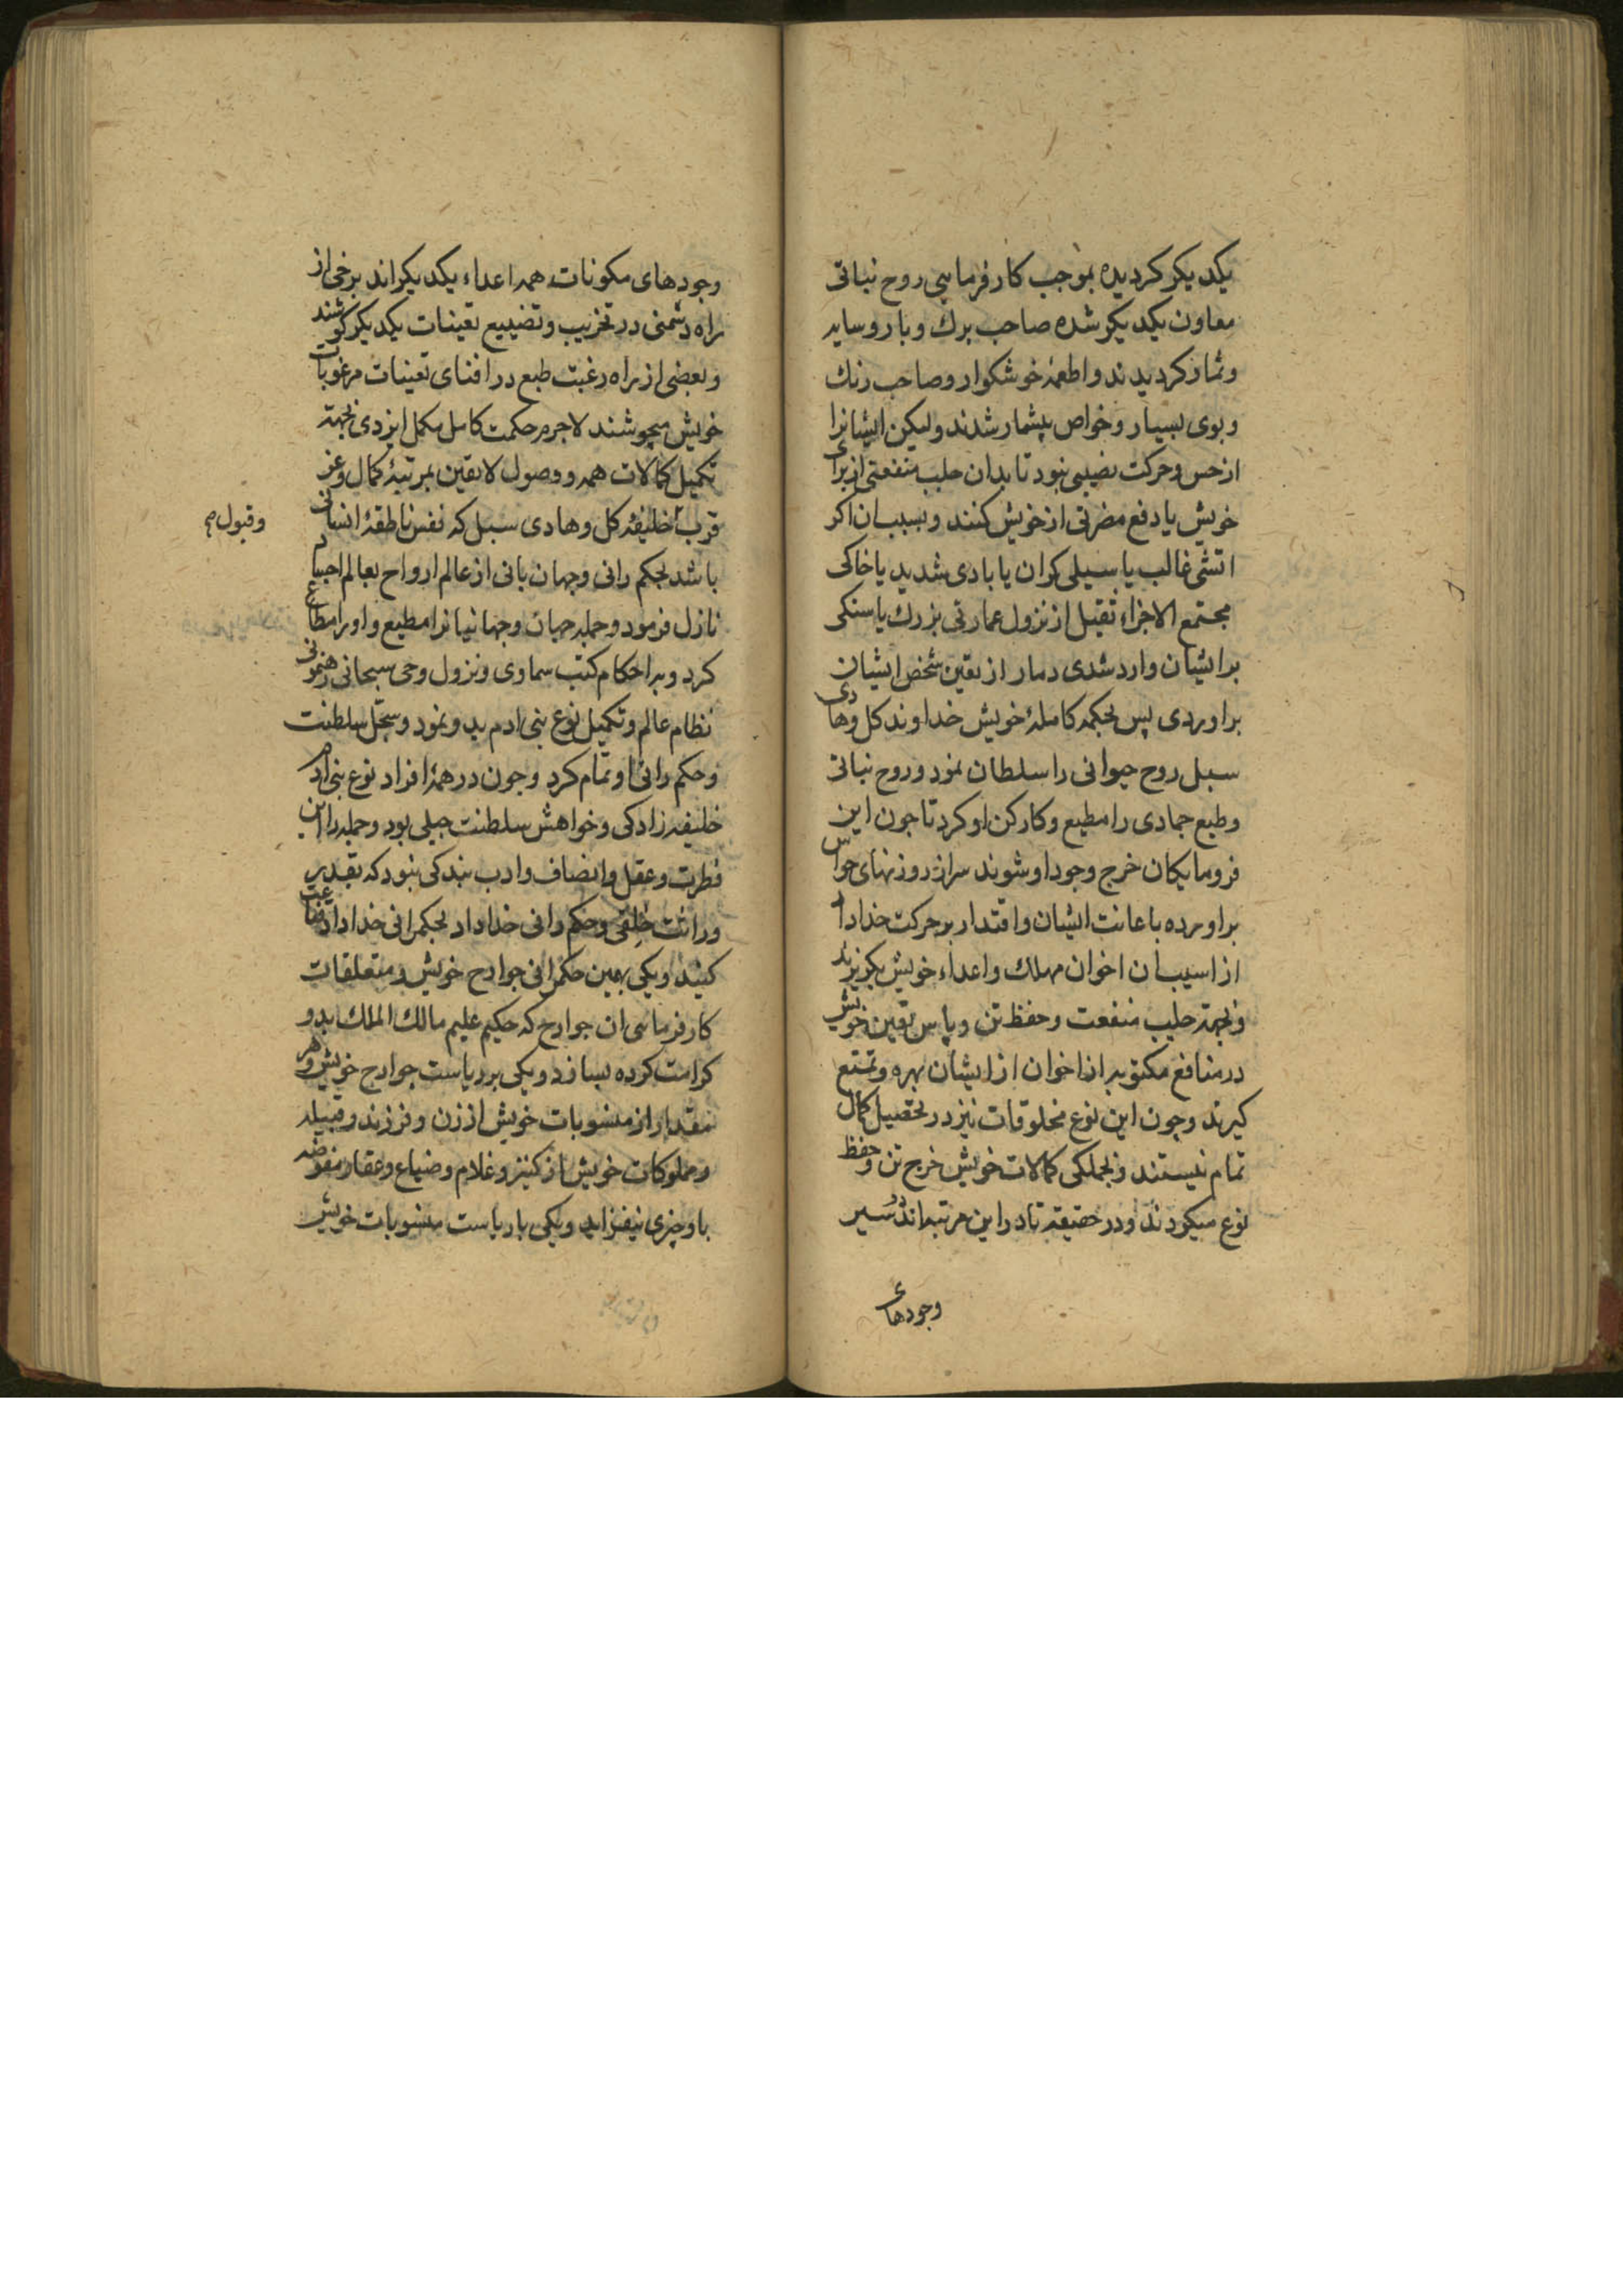 یکدیکر کردیده بموجب کارفرمایی روح نباتی
معاون یکدیکر شده صاحب برك و بار و سایه
و ثمار کردیدند و اطعمهٔ خوشکوار و صاحب رنك
و بوی بسیار و خواص بیشمار شدند و لیکن ایشانرا
از حس و حرکت نصیبی نبود تا بدان جلب منفعتی از برای
خویش یا دفع مضرتی از خویش کنند و بسبب ان اکر
اتشی غالب یا سیلی کران یا بادی شدید یا خاکی
مجتمع الاجزاء ثقیل از نزول عمارتی بزرك یا سنکی
بر ایشان وارد شدی دمار از تعین شخص ایشان
براوردی پس بحکمهٔ کاملهٔ خویش خداوند کل و هادی
سبل روح حیوانی را سلطان نمود و روح نباتی
و طبع جمادی را مطیع و کارکن او کرد تا جون این
فرومایکان خرج وجود او شوند سر از روزنهای حواس
براورده باعانت ایشان و اقتدار بر حرکت خداداد
از اسیب ان اخوان مهلك و اعداء خویش بکریزند
و بجهة جلب منفعت و حفظ تن و پاس تعین خویش
در منافع مکتوبه از اخوان از ایشان بهره و تمتع
کیرند و جون این نوع مخلوقات نیز در تحصیل کمال
تمام نیستند و بجملکی کمالات خویش خرج تن و حفظ
نوع میکردند و در حقیقة تا در این مرتبه‌اند سیر
وجودهای
وجودهای مکونات همه اعداء یکدیکراند برخی از
راه دشمنی در تخریب و تضییع تعینات یکدیکر کوشند
و بعضی از راه رغبت طبع در افنای تعینات مرغوبات
خویش میجوشند لاجرم حکمت کامل مکمل ایزدی بجهة
تکمیل کمالات همه و وصول لایقین بمرتبهٔ کمال و عز
قرب خلیفهٔ کل و هادی سبل که نفس ناطقهٔ انسانی
و قبول
باشد بحکم رانی و جهان بانی از عالم ارواح بعالم اجسام
نازل فرمود و جمله جهان و جهانیانرا مطیع و او را مطاع
کرد و برا حکام کتب سماوی و نزول وحی سبحانی رهنمونی
نظام عالم و تکمیل نوع بنی ادم بدو نمود و سجل سلطنت
و حکم رانی او تمام کرد و جون در همهٔ افراد نوع بنی ادم
خلیفه زادکی و خواهش سلطنت جبلی بود و جمله را این
فطرت و عقل و انصاف و ادب بندکی نبود که بقدر
وراثت خلفی و حکم رانی خداداد بحکمرانی خداداد قناعت
کنند و یکی بهمین حکمرانی جوارح خویش و متعلقات
کارفرمایی ان جوارح که حکیم علیم مالك الملك بدو
کرامت کرده بسازد و یکی بر ریاست جوارح خویش و هر
مقدار از منسوبات خویش از زن و فرزند و قبیله
و مملوکات خویش از کنیز و غلام و ضیاع و عقار مفوضه
باو چیزی نیفزاید و یکی با ریاست منسوبات خویش